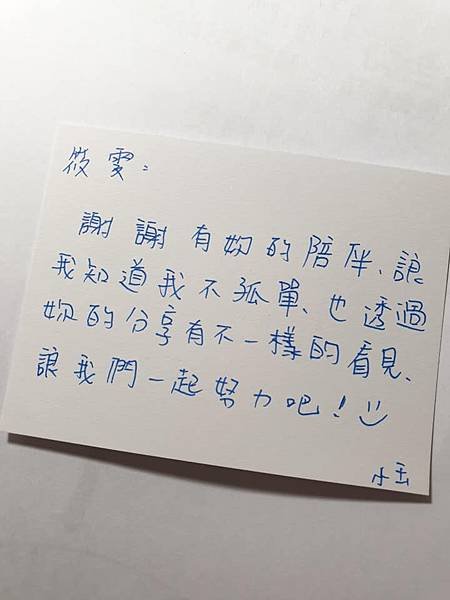 筱雯：
謝謝有妳的陪伴、讓
我知道我不孤單、也透過
妳的分享有不一樣的看見、
讓我們一起努力吧！
小玉